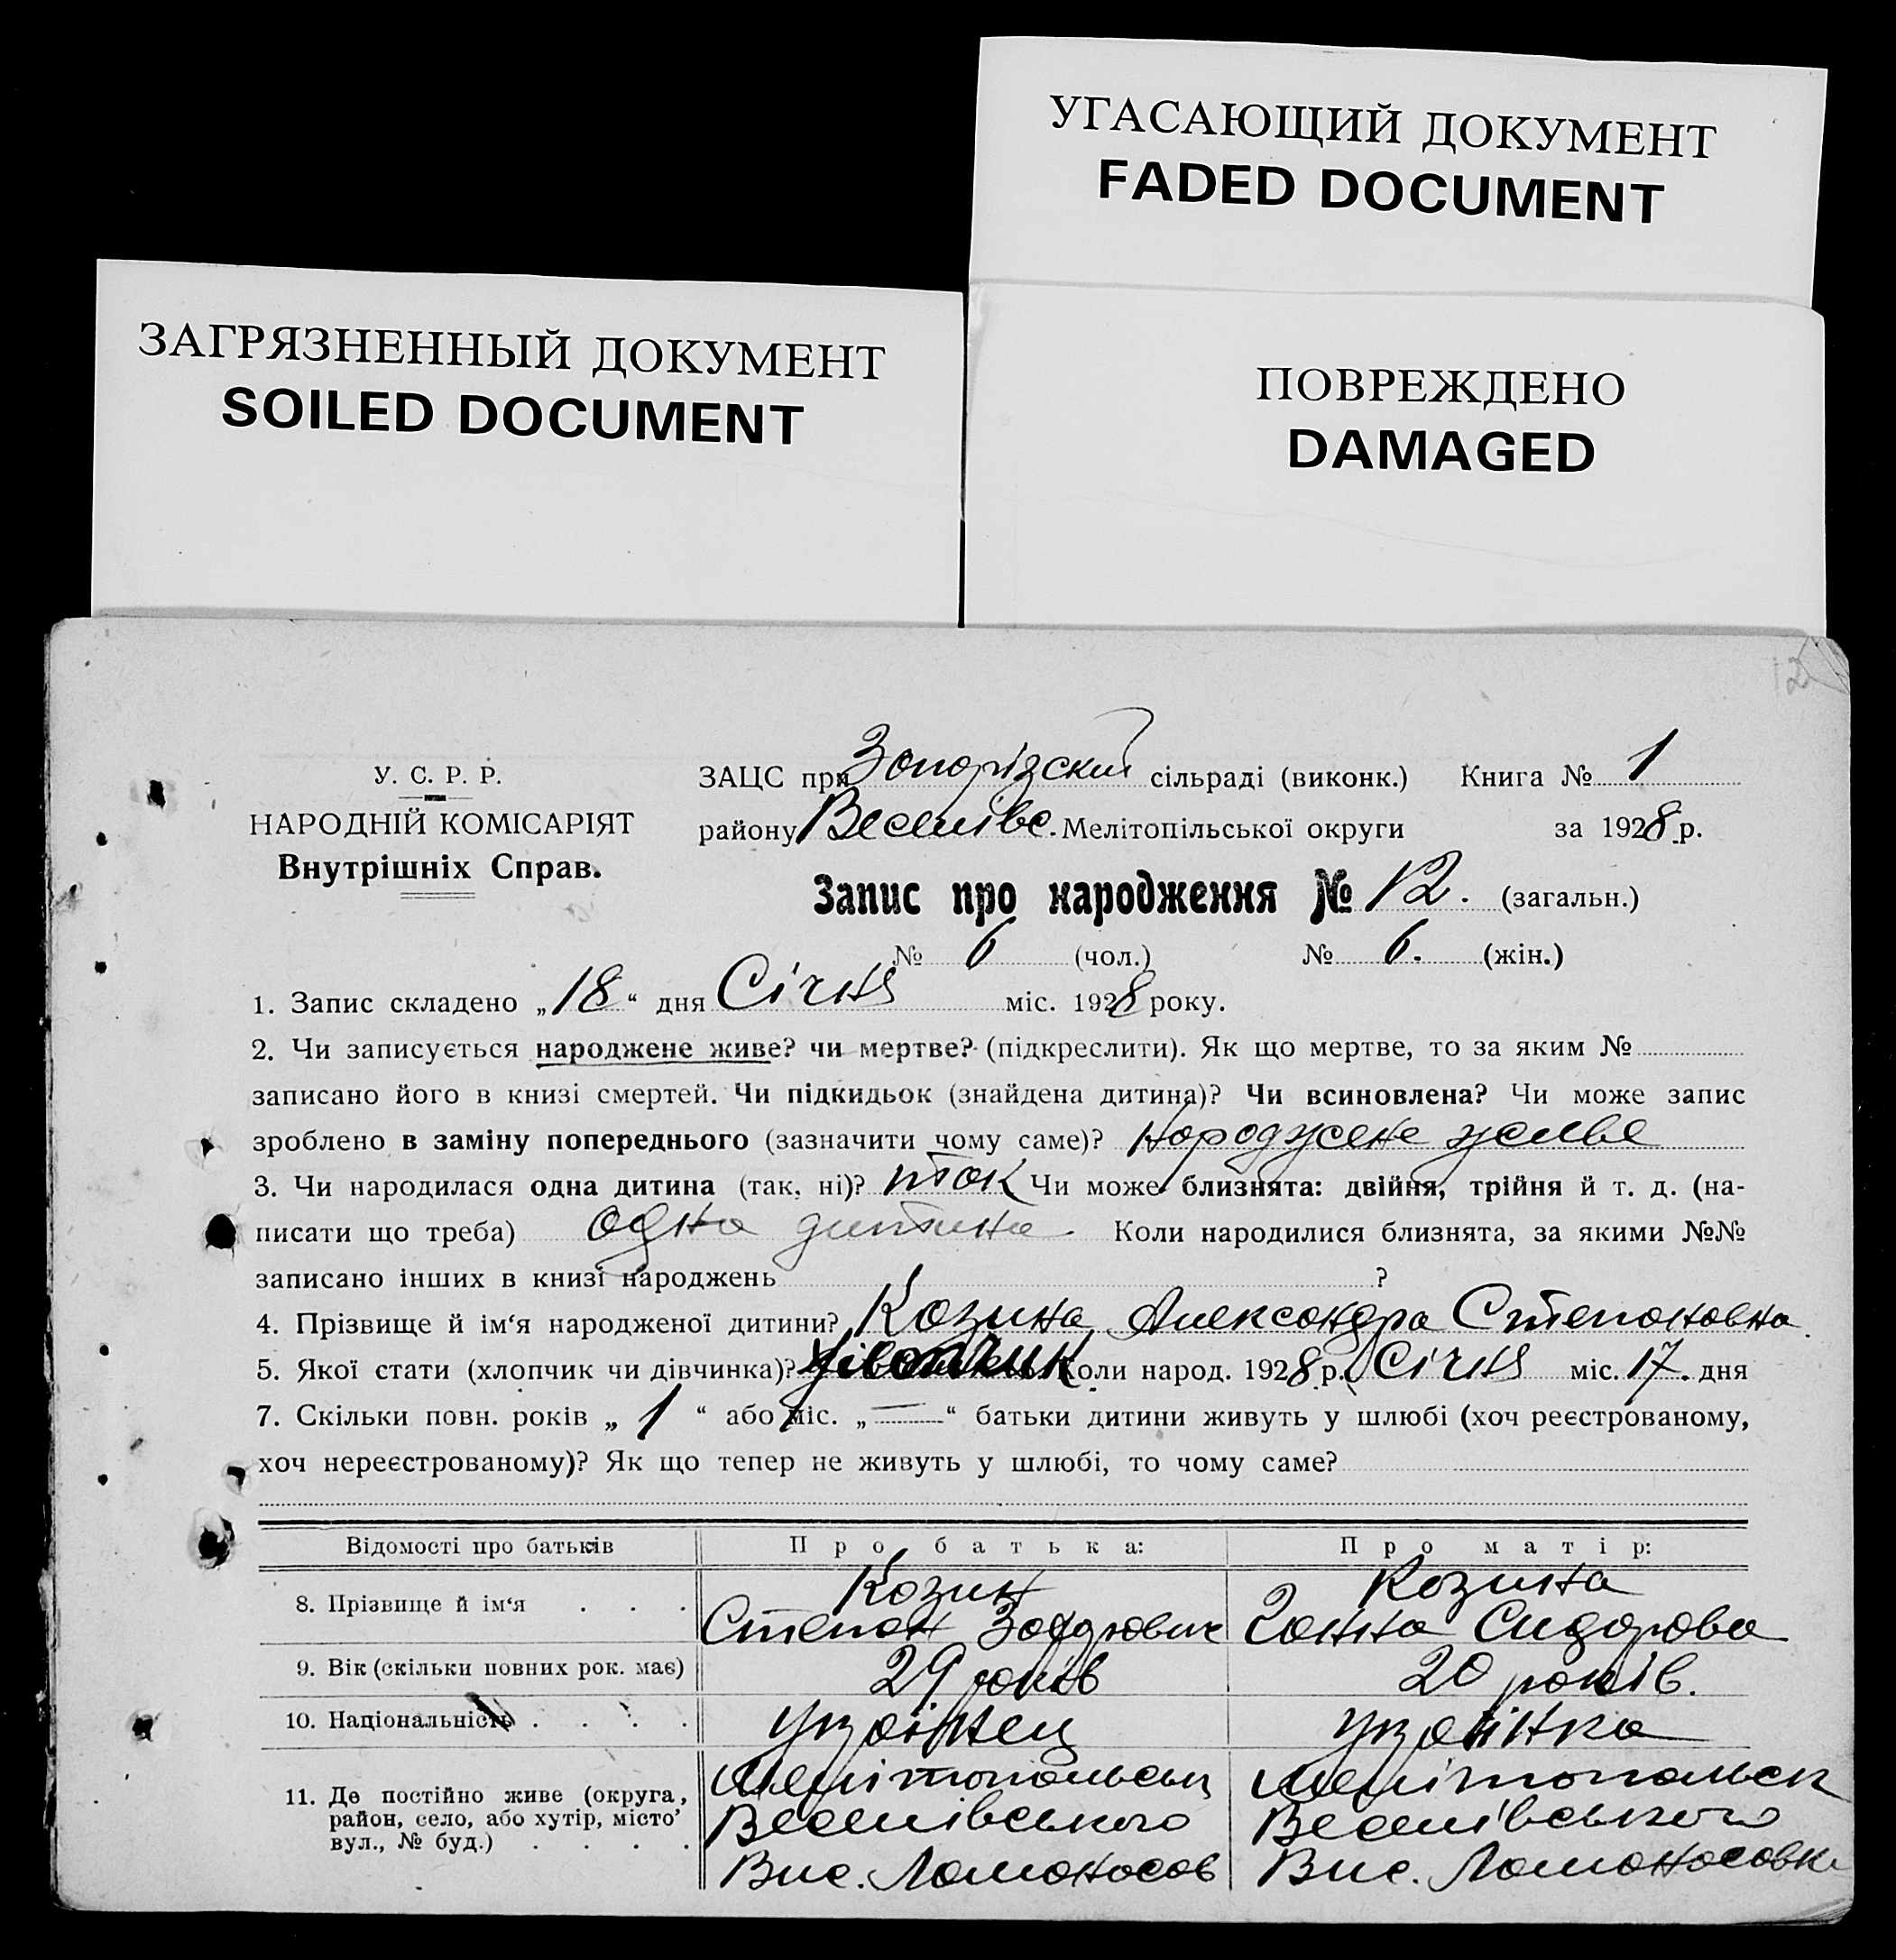 УГАСАЮЩИЙ ДОКУМЕНТ
FADED DOCUMENT
ЗАГРЯЗНЕННЫЙ ДОКУМЕНТ
SOILED DOCUMENT
ПОВРЕЖДЕНО
DAMAGED
12
У. С. Р. Р.
НАРОДНІЙ КОМІСАРІЯТ
Внутрішніх Справ.
ЗАЦС при Запорізский сільраді (виконк.) Книга № 1
району Веселівс. Мелітопільської округи за 1928 р.
Запис про народження № 12. (загальн.)
№ 6 (чол.) № 6. (жін.)
1. Запис складено „18“ дня Січня міс. 1928 року.
2. Чи записується народжене живе? чи мертве? (підкреслити). Як що мертве, то за яким №
записано його в книзі смертей. Чи підкидьок (знайдена дитина)? Чи всиновлена? Чи може запис
зроблено в заміну попереднього (зазначити чому саме)? народжене живе
3. Чи народилася одна дитина (так, ні)? так Чи може близнята: двійня, трійня й т. д. (на-
писати що треба) одна дитина Коли народилися близнята, за якими №№
записано інших в книзі народжень ?
4. Прізвище й ім‘я народженої дитини? Козина Александра Степановна.
5. Якої стати (хлопчик чи дівчинка)? Коли народ. 1928 р. Січня міс. 17. дня
7. Скільки повн. років „ 1 “ або міс. „ — “ батьки дитини живуть у шлюбі (хоч реєстрованому,
хоч нереєстрованому)? Як що тепер не живуть у шлюбі, то чому саме?
Відомості про батьків Про батька: Про матір:
8. Прізвище й ім‘я . . . Козин Козина
Степан Ганна Сидорова
9. Вік (скільки повних рок. має) 29 років 20 років.
10. Національність . . . . українец українка
11. Де постійно живе (округа, район, село, або хутір, місто’ вул., № буд.) . . . . Мелітопольськ Мелітопольск
Веселівського Веселівського
Вис. Ломоносов Вис. Ломоносовк